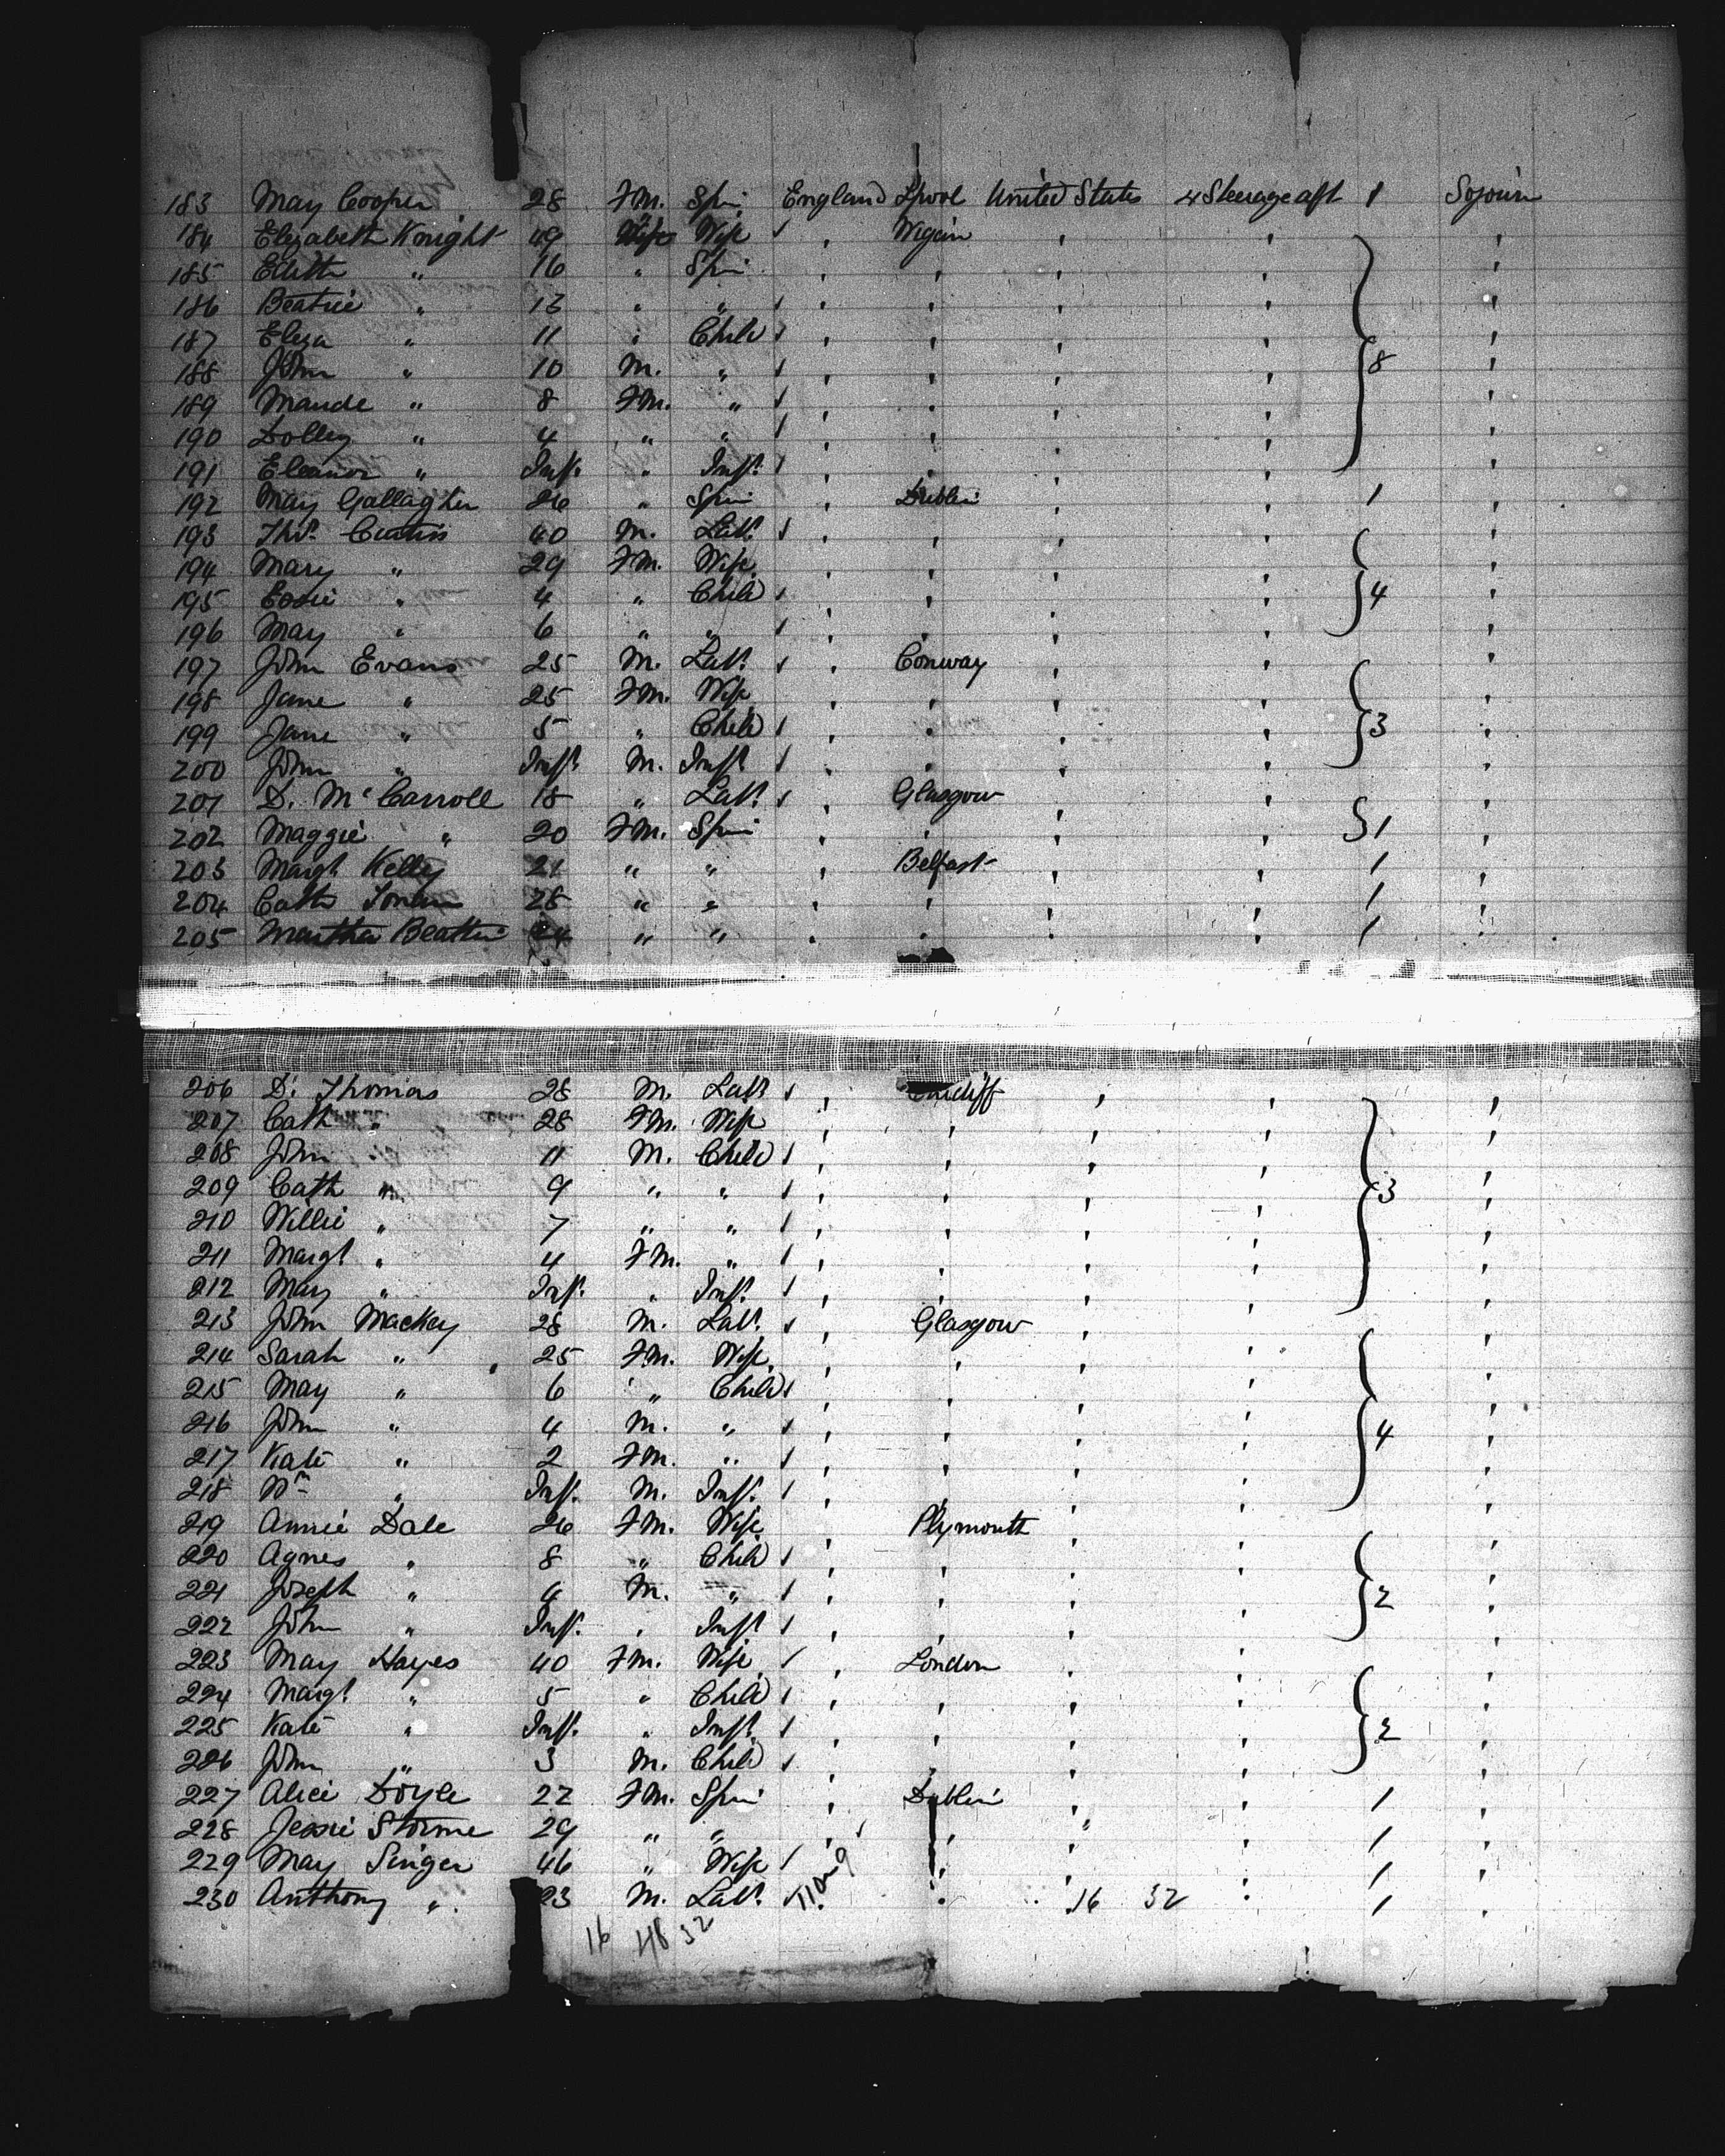 183 May Cooper 28 Fm. Spin England Lpool United States 4 Steerage aft 1 Sojourn
184 Elizabeth Knight 49 " Wife Wigan
185 Edith " 16 " Spin
186 Beatrice " 13 " "
187 Eliza " 11 " Child
188 John " 10 M. " 8
189 Maude " 8 Fm. "
190 Dolley " 4 " "
191 Eleanor " Inft. " Inft.
192 May Gallagher 26 " Spin Dublin 1
193 Thos. Curtis 40 M. Labr.
194 Mary " 29 Fm. Wife
195 " 4 " Child 4
196 May " 6 " "
197 John Evans 25 M. Labr. Conway
198 Jane " 25 Fm. Wife
199 Jane " 5 " Child 3
200 John " Inft. M. Inft.
201 D. McCarroll 18 " Labr. Glasgow
202 Maggie " 20 Fm. Spin 1
203 Margt Kelly 21 " " Belfast 1
204 Cath 28 " " 1
205 Martha Beattie 24 " " 1
206 D. Thomas 28 M. Labr Cardiff
207 Cath " 28 Fm. Wife
208 John " 11 M. Child
209 Cath " 9 " " 3
210 Willie " 7 " "
211 Margt " 4 Fm. "
212 May " Inft. " Inft.
213 John Mackay 28 M. Labr. Glasgow
214 Sarah " 25 Fm. Wife
215 May " 6 " Child
216 John " 4 M. " 4
217 Kate " 2 Fm. "
218 Wm " Inft. M. Inft.
219 Annie Dale 26 Fm. Wife Plymouth
220 Agnes " 8 " Child
221 Joseph " 4 M. " 2
222 John " Inft. " Inft
223 May Hayes 40 Fm. Wife London
224 Margt " 5 " Child
225 Kate " Inft. " Inft. 2
226 John " 3 M. Child
227 Alice Doyle 22 Fm. Spin Dublin 1
228 Jessie Storme 29 " " " 1
229 May Singer 46 " Wife 1
230 Anthony " 23 M. Labr. 16 32 1
16 48 32